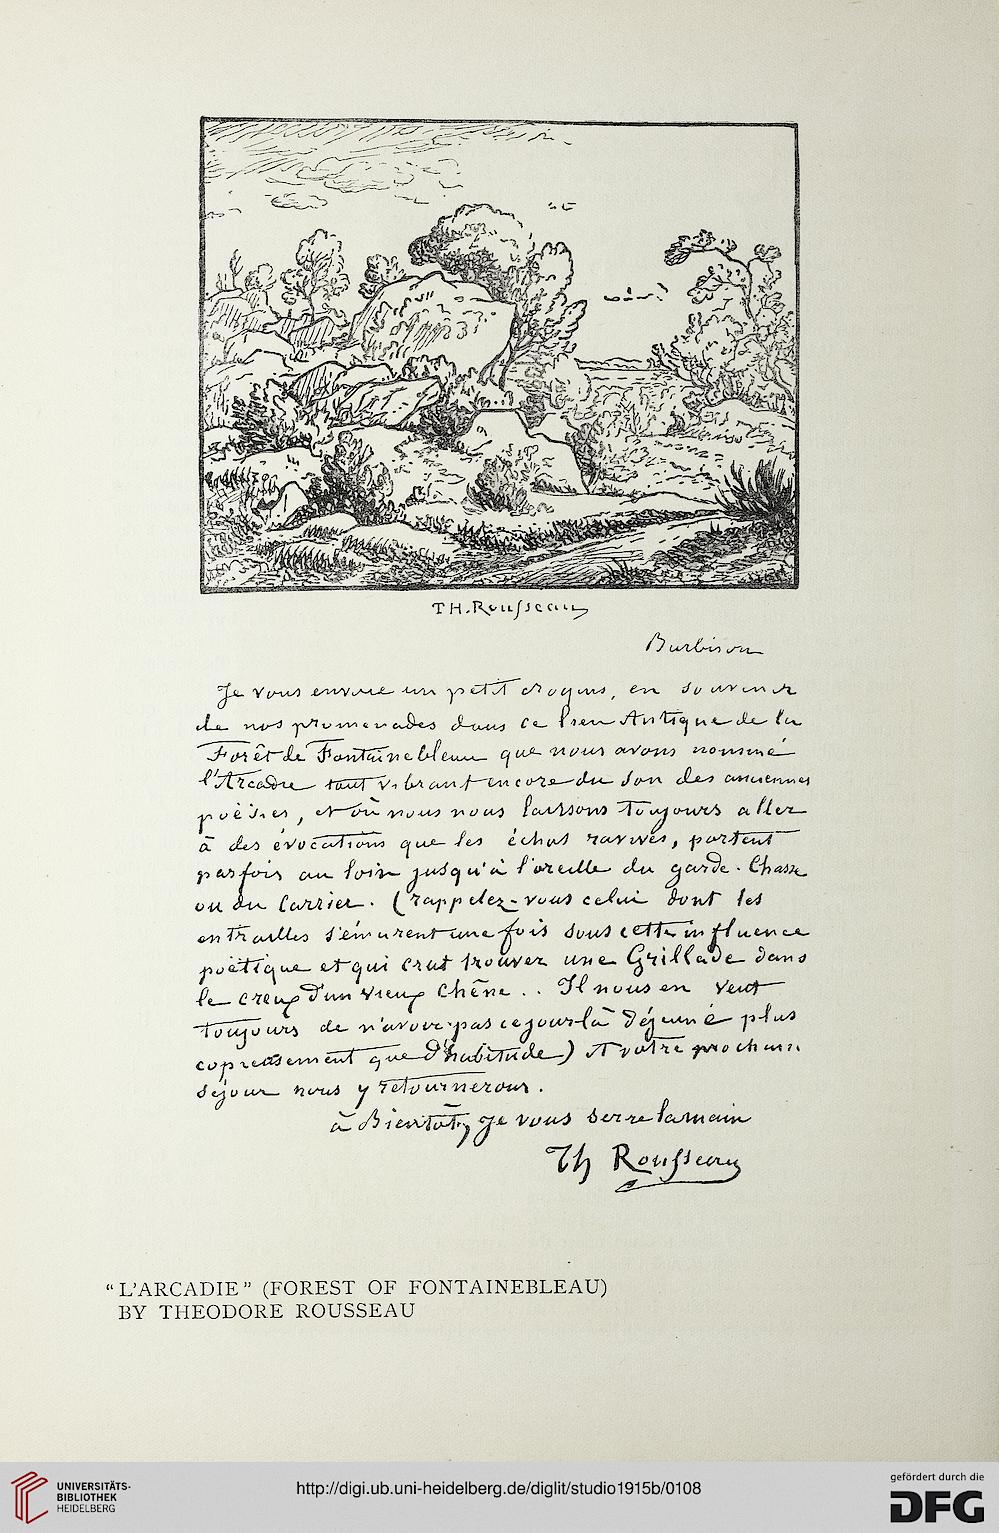 TH. Rousseau
Barbison
Je vous envoie un petit croquis, en souvenir
de nos promenades dans ce lieu Antique de la
Forêt de Fontainebleau que nous avons nommé
l'Arcadie tout vibrant encore du son des anciennes
poësies, et où nous nous laissons toujours aller
à des évocations que les échos ravivés, portent
parfois au loin jusqu'à l'oreille du garde-Chasse
ou du Carrier. (rappelez-vous celui dont les
entrailles s'émurent une fois sous cette influence
poëtique et qui crut trouver une Grillade dans
le creux d'un vieux Chêne . . Il nous en veut
toujours de n'avoir pas ce jour là déjeuné plus
copieusement que d'habitude) A votre prochain
séjour nous y retournerons.
à Bientôt, Je vous serre la main
Th Rousseau
"L'ARCADIE" (FOREST OF FONTAINEBLEAU)
BY THEODORE ROUSSEAU
UNIVERSITÄTS-
BIBLIOTHEK
HEIDELBERG
http://digi.ub.uni-heidelberg.de/diglit/studio1915b/0108
gefördert durch die
DFG